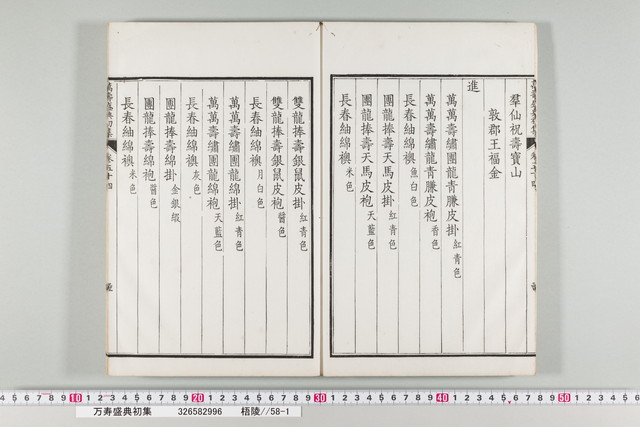 羣仙祝壽寶山
敦郡王福金
進
萬萬壽繡團龍青膁皮掛 紅青色
萬萬壽繡龍青膁皮袍 香色
長春紬綿襖 魚白色
團龍捧壽天馬皮掛 紅青色
團龍捧壽天馬皮袍 天藍色
長春紬綿襖 米色
雙龍捧壽銀鼠皮掛 紅青色
雙龍捧壽銀鼠皮袍 醬色
長春紬綿襖 月白色
萬萬壽繡團龍綿掛 紅青色
萬萬壽繡團龍綿袍 天藍色
長春紬綿襖 灰色
團龍捧壽綿掛 金銀緞
團龍捧壽綿袍 醬色
長春紬綿襖 米色
萬壽盛典初集 卷五十四
10 20 30 40 50
万寿盛典初集 326582996 梧陵//58-1